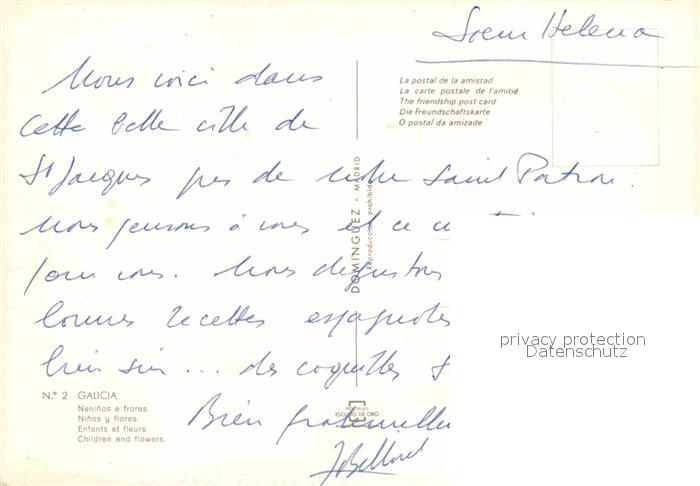 Soeur Helena
Nous voici dans
Cette belle ville de
St Jacques près de notre Saint Patron.
Nous pensons à vous et ce
pour vous. Nous dégustons
bonnes recettes espagnoles
bien sûr ... des coquilles S
Bien fraternelle
La postal de la amistad
La carte postale de l'amitié
The friendship post card
Die Freundschaftskarte
O postal da amizade
DOMINGUEZ - MADRID
Reproducción prohibida
privacy protection
Datenschutz
N.º 2 GALICIA
Neniños e frores.
Niños y flores.
Enfants et fleurs.
Children and flowers.
POSTALES
ESCUDO DE ORO